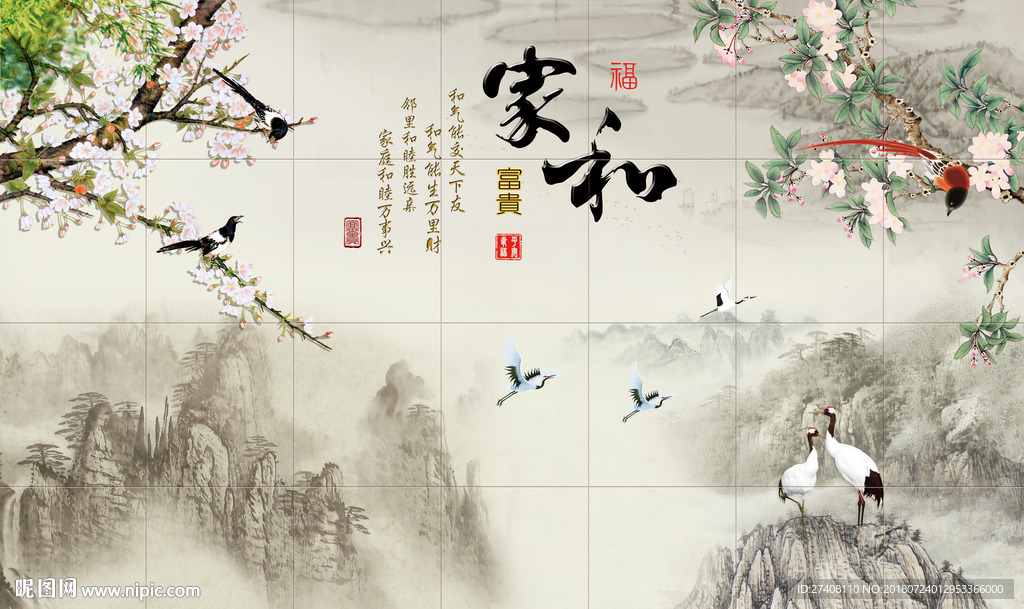 家和
福
富貴
和气能交天下友
和气能生万里财
邻里和睦胜远亲
家庭和睦万事兴
富貴
昵图网 www.nipic.com
ID:27408110 NO:20180724012953366000